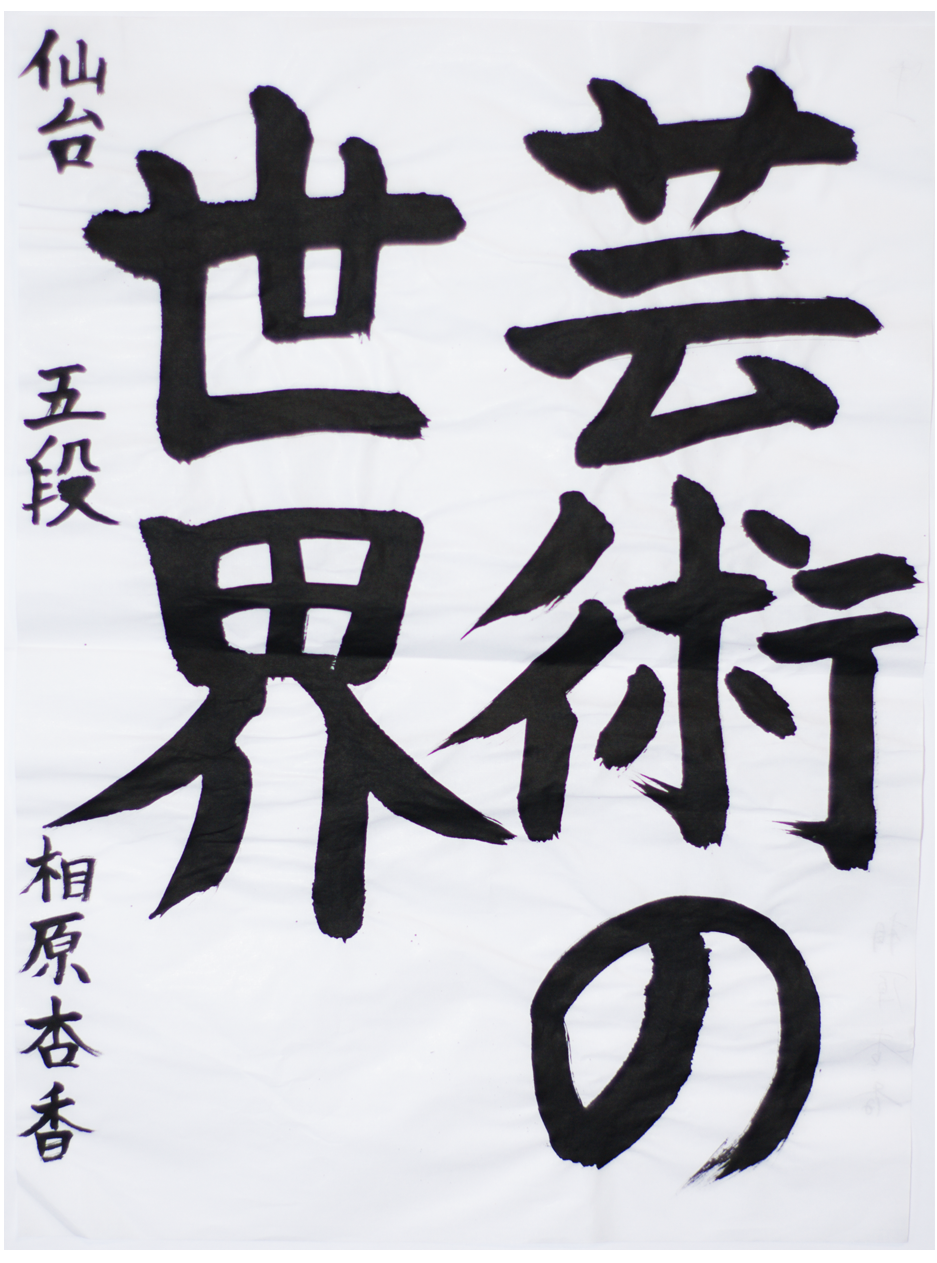 芸術の
世界
仙台 五段 相原杏香